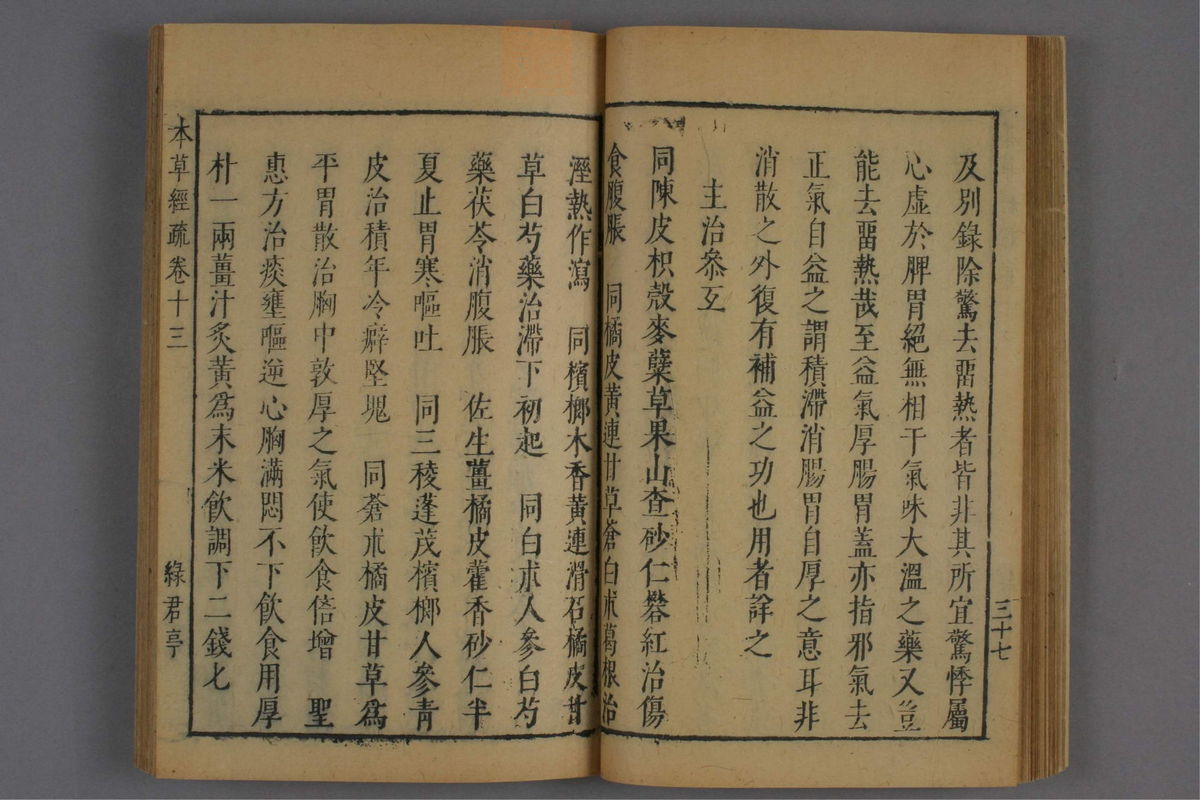 及別錄除驚去畱熱者皆非其所宜驚悸屬
心虛於脾胃絕無相干氣味大溫之藥又豈
能去畱熱哉至益氣厚腸胃蓋亦指邪氣去
正氣自益之謂積滯消腸胃自厚之意耳非
消散之外復有補益之功也用者詳之
主治叅互
同陳皮枳殼麥糵草果山查砂仁礬紅治傷
食腹脹　同橘皮黃連甘草蒼白朮葛根治
溼熱作瀉　同檳榔木香黃連滑石橘皮甘
草白芍藥治滯下初起　同白朮人參白芍
藥茯苓消腹脹　佐生薑橘皮藿香砂仁半
夏止胃寒嘔吐　同三稜蓬茂檳榔人參青
皮治積年冷癖堅塊　同蒼朮橘皮甘草爲
平胃散治胸中敦厚之氣使飲食倍增　聖
惠方治痰壅嘔逆心胸滿悶不下飲食用厚
朴一兩薑汁炙黃爲末米飲調下二錢七
三十七
本草經疏卷十三
綠君亭